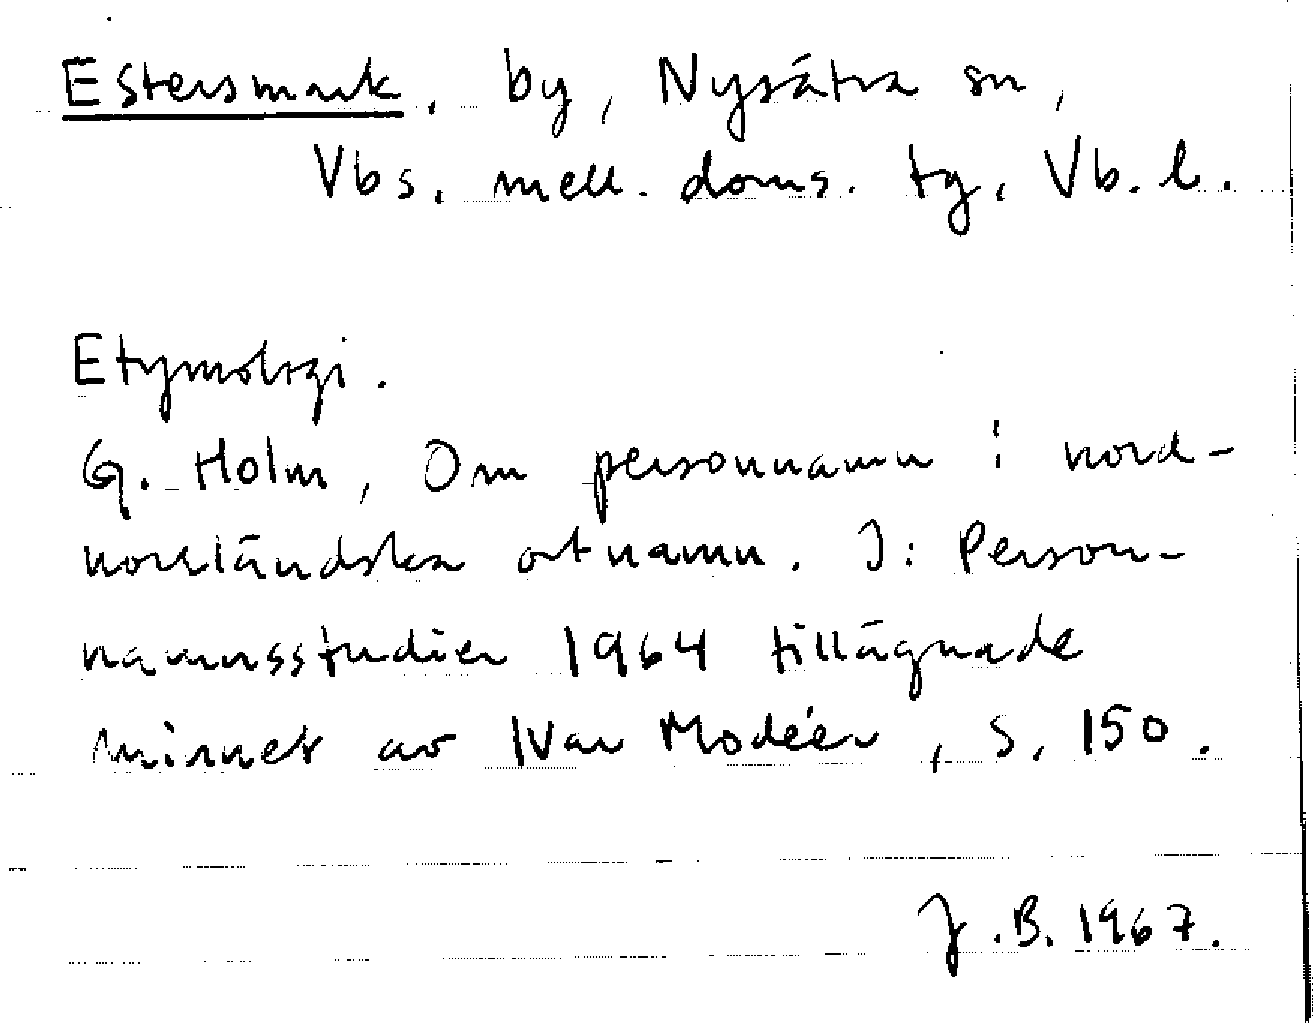 Estersmark, by, Nysätra sn,
Vbs. mell. doms. tg, Vb. l.
Etymologi.
G. Holm, Om personnamn i nord-
norrländska ortnamn. I: Person-
namnsstudier 1964 tillägnade
minnet av Ivar Modéer, s. 150.
J.B. 1967.